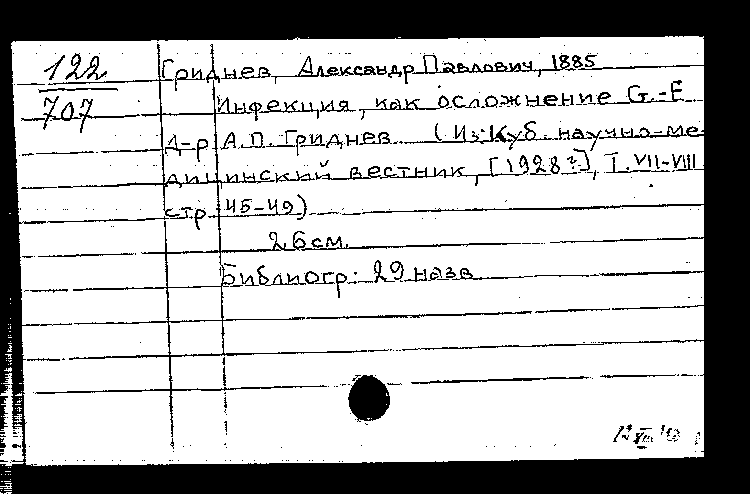 122
707
Гриднев, Александр Павлович, 1885
Инфекция, как осложнение G.-E
Д-р А.П. Гриднев (Из: Куб. научно-ме-
дицинский вестник, [1928?], Т. VII-VIII
стр. 45-49)
26 см.
Библиогр: 29 назв